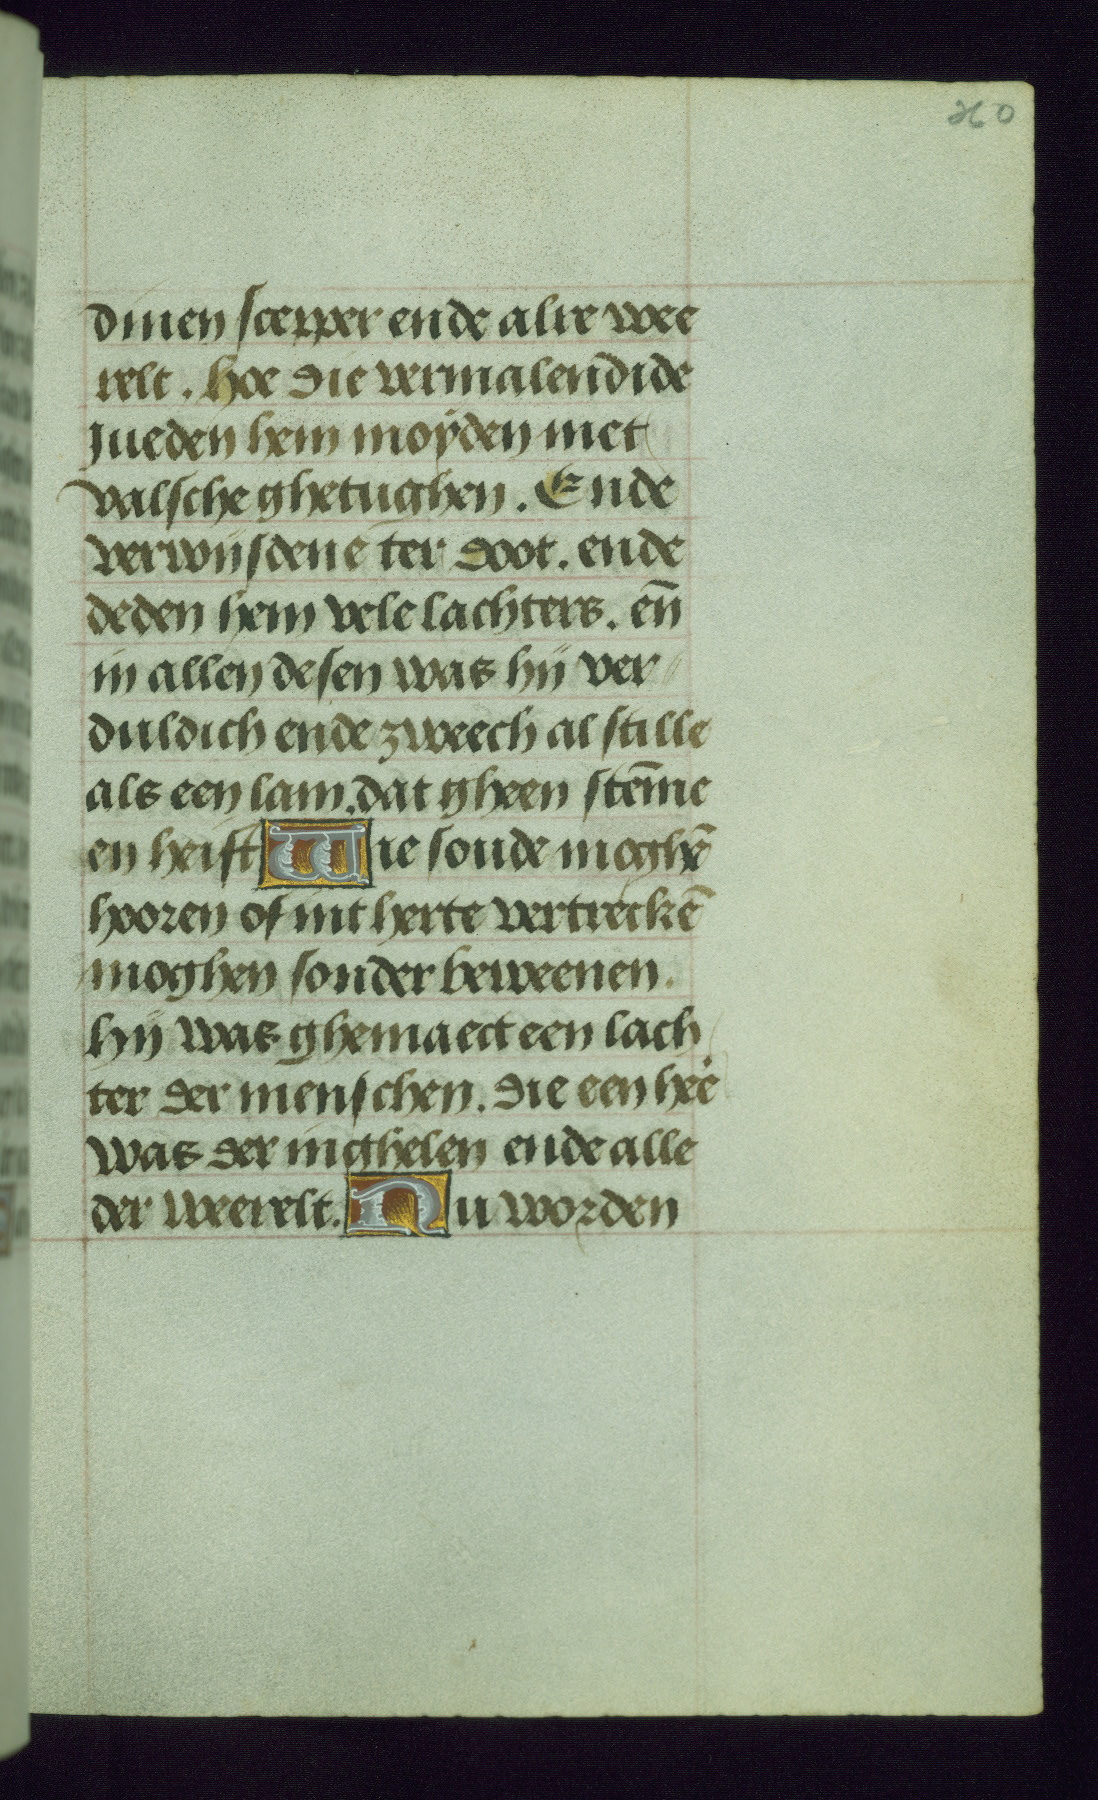 260
dinen scepper ende alre wee
relt. Hoe die vermalendide
Jueden hem moyden met
valsche ghetughen. Ende
verwijsdene ter doot. ende
deden hem vele lachters. en̄
in allen desen was hij ver
duldich ende zweech al stille
als een lam. dat gheen stēme
en heift Wie soude moghē
hooren of int herte vertreckē
moghen sonder beweenen.
Hij was ghemaect een lach
ter der menschen. die een hee
was der inghelen ende alle
der weerelt. Nu worden